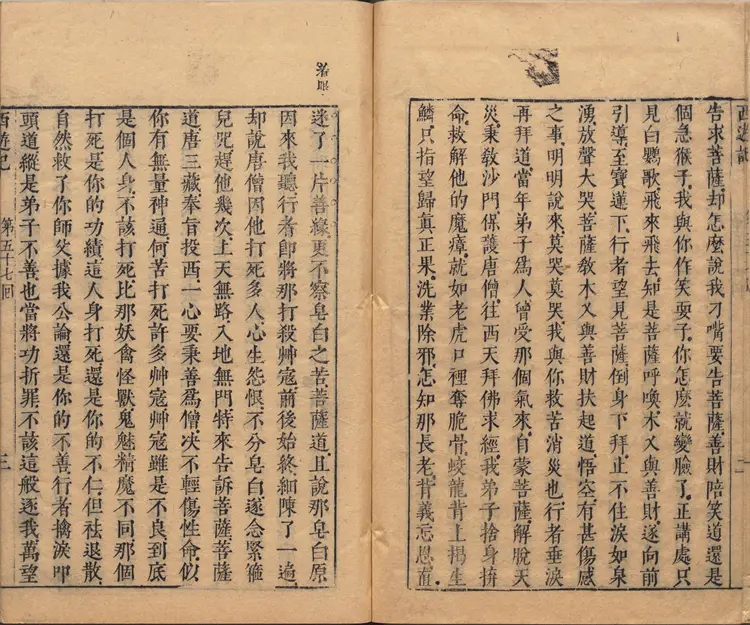 西遊記
告求菩薩却怎麼說我刁嘴要告菩薩善財陪笑道還是
個急猴子我與你作笑耍子你怎麼就變臉了正講處只
見白鸚歌飛來飛去知是菩薩呼喚木叉與善財遂向前
引導至寶蓮下行者望見菩薩倒身下拜止不住淚如泉
湧放聲大哭菩薩教木叉與善財扶起道悟空有甚傷感
之事明明說來莫哭莫哭我與你救苦消災也行者垂淚
再拜道當年弟子爲人曾受那個氣來自蒙菩薩解脫天
災秉敎沙門保護唐僧往西天拜佛求經我弟子捨身拚
命救解他的魔瘴就如老虎口裡奪脆骨蛟龍背上揭生
鱗只指望歸眞正果洗業除邪怎知那長老背義忘恩直
迷了一片善緣更不察皂白之苦菩薩道且說那皂白原
因來我聽行者即將那打殺艸寇前後始終細陳了一遍
却說唐僧因他打死多人心生怨恨不分皂白遂念緊箍
兒咒趕他幾次上天無路入地無門特來告訴菩薩菩薩
道唐三藏奉旨投西一心要秉善爲僧決不輕傷性命似
你有無量神通何苦打死許多艸寇艸寇雖是不良到底
是個人身不該打死比那妖禽怪獸鬼魅精魔不同那個
打死是你的功績這人身打死還是你的不仁但祛退散
自然救了你師父據我公論還是你的不善行者擒淚叩
頭道縱是弟子不善也當將功折罪不該這般逐我萬望
西遊記 第五十七回 三